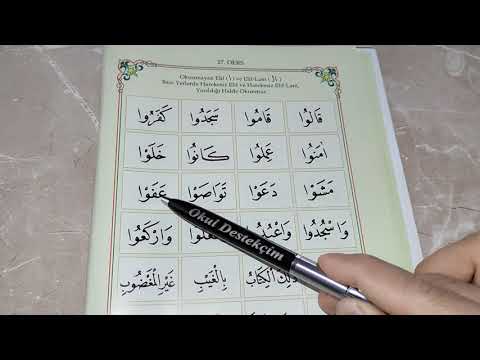 27. DERS
Okunmayan Elif ( ا ) ve Elif-Lam ( ال )
Bazı Yerlerde Harekesiz Elif ve Harekesiz Elif-Lam,
Yazıldığı Halde Okunmaz.
قَالُوا قَامُوا سَجَدُوا كَفَرُوا
اٰمَنُوا عَمِلُوا كَانُوا خَلَوْا
مَشَوْا دَعَوْا تَوَاصَوْا عَفَوْا
وَاسْجُدُوا وَاعْبُدُوا وَارْكَعُوا
ذٰلِكَ الْكِتَابُ بِالْغَيْبِ غَيْرِ الْمَغْضُوبِ
Okul Destekçim